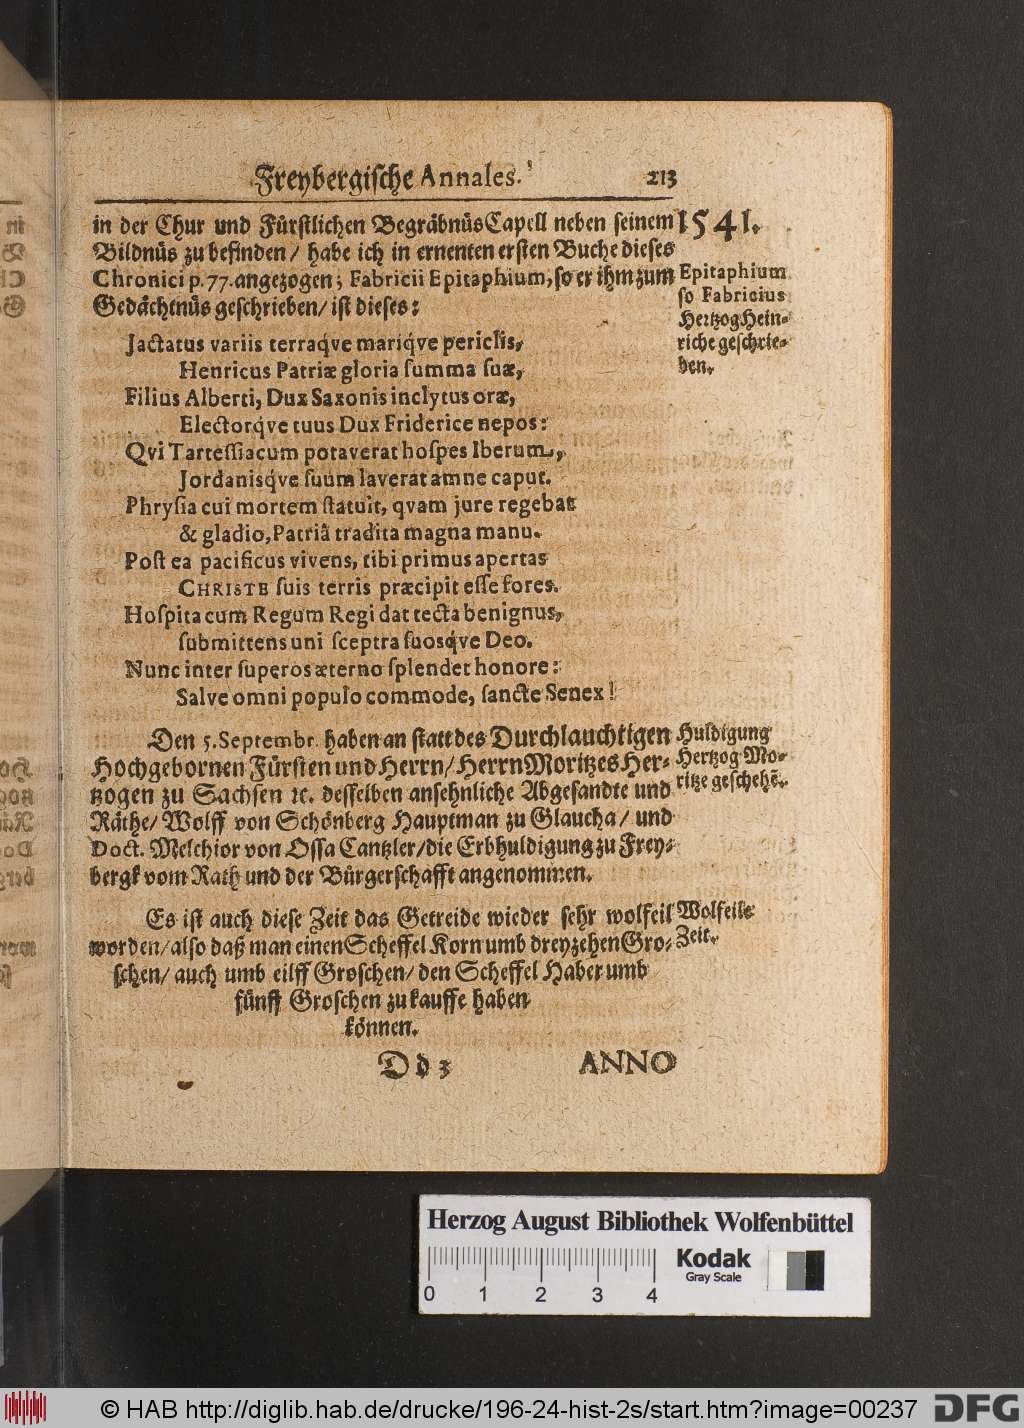 Freybergische Annales. 213
in der Chur und Fürstlichen BegräbnüsCapell neben seinem
Bildnüs zu befinden / habe ich in ernenten ersten Buche dieses
Chronici p. 77. angezogen; Fabricii Epitaphium, so er ihm zum
Gedächtnüs geschrieben / ist dieses:
1541.
Epitaphium
so Fabricius
Hertzog Hein-
riche geschrie-
ben.
Jactatus variis terraq́ve mariq́ve periclis,
Henricus Patriæ gloria ſumma ſuæ,
Filius Alberti, Dux Saxonis inclytus oræ,
Electorq́ve tuus Dux Friderice nepos:
Qvi Tarteſſiacum potaverat hoſpes Iberum,
Jordanisq́ve ſuum laverat amne caput.
Phryſia cui mortem ſtatuit, qvam jure regebat
& gladio, Patriâ tradita magna manu.
Poſt ea pacificus vivens, tibi primus apertas
CHRISTE ſuis terris præcipit eſſe fores.
Hoſpita cum Regum Regi dat tecta benignus,
ſubmittens uni ſceptra ſuosq́ve Deo.
Nunc inter ſuperos æterno ſplendet honore:
Salve omni populo commode, ſancte Senex!
Den 5. Septembr. haben an statt des Durchlauchtigen
Hochgebornen Fürsten und Herrn / Herrn Moritzes Her-
tzogen zu Sachsen ꝛc. desselben ansehnliche Abgesandte und
Räthe / Wolff von Schönberg Hauptman zu Glaucha / und
Doct. Melchior von Ossa Cantzler / die Erbhuldigung zu Frey-
bergk vom Rath und der Bürgerschafft angenommen.
Huldigung
Hertzog Mo-
ritze geschehē.
Es ist auch diese Zeit das Getreide wieder sehr wolfeil
worden / also daß man einen Scheffel Korn umb dreyzehen Gro-
schen / auch umb eilff Groschen / den Scheffel Haber umb
fünff Groschen zu kauffe haben
können.
Wolfeile
Zeit.
Dd 3 ANNO
Herzog August Bibliothek Wolfenbüttel
Kodak
Gray Scale
0 1 2 3 4
© HAB http://diglib.hab.de/drucke/196-24-hist-2s/start.htm?image=00237
DFG